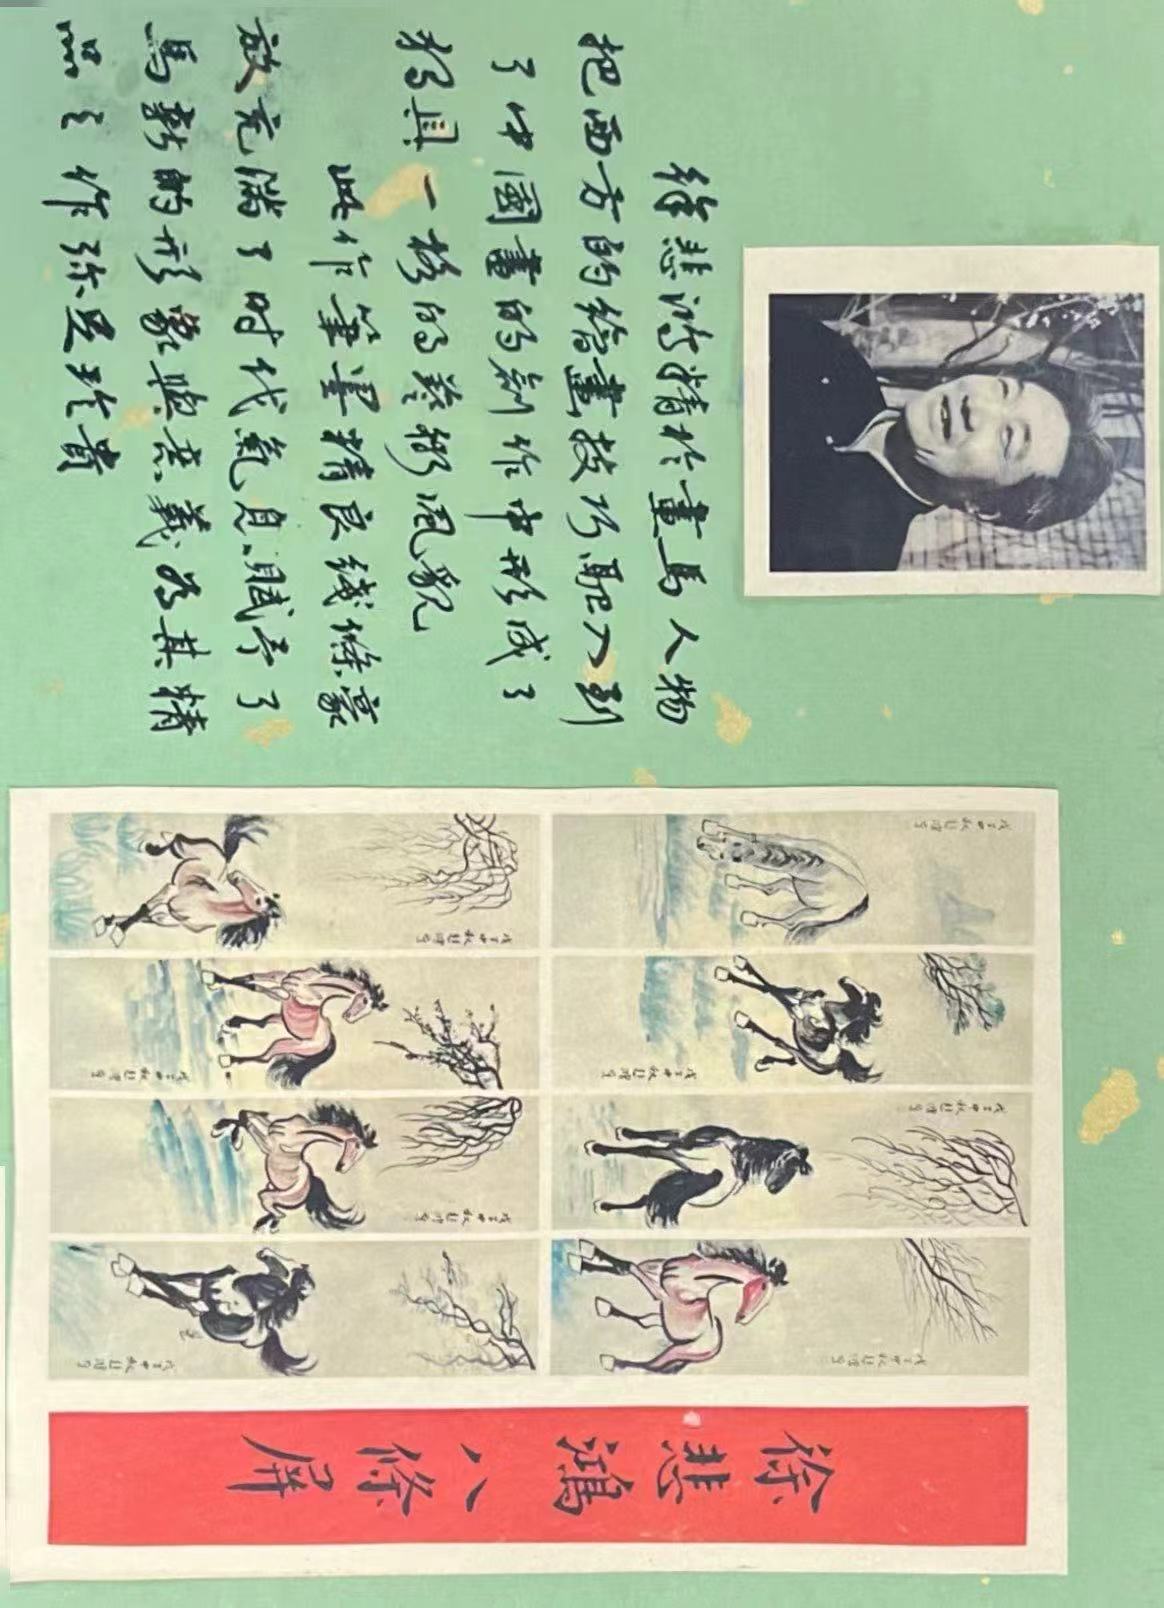 徐悲鸿精於畫馬人物
把西方的繪畫技巧融入到
了中國畫的創作中形成了
獨具一格的藝術風貌
此作筆墨精良线條豪
放充满了時代氣息賦予了
馬新的形象與意義為其精
品之作弥足珍貴
徐悲鴻八條屏